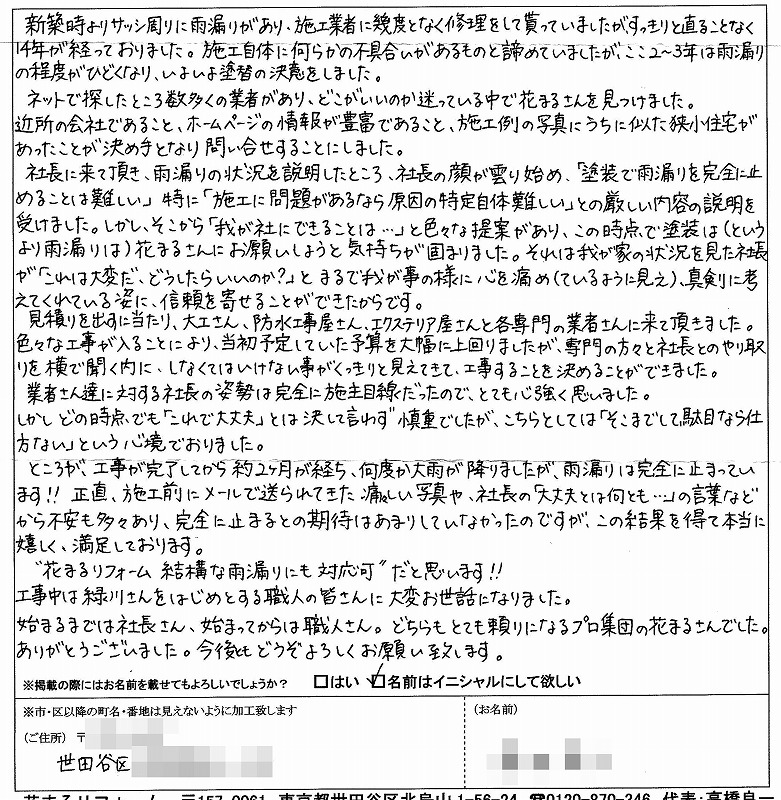 新築時よりサッシ周りに雨漏りがあり、施工業者に幾度となく修理をして貰っていましたが、すっきりと直ることなく
14年が経っておりました。施工自体に何らかの不具合いがあるものと諦めていましたが、ここ2〜3年は雨漏り
の程度がひどくなり、いよいよ塗替の決意をしました。
ネットで探したところ数多くの業者があり、どこがいいのか迷っている中で花まるさんを見つけました。
近所の会社であること、ホームページの情報が豊富であること、施工例の写真にうちに似た狭小住宅が
あったことが決め手となり問い合せすることにしました。
社長に来て頂き、雨漏りの状況を説明したところ、社長の顔が曇り始め、「塗装で雨漏りを完全に止
めることは難しい」特に「施工に問題があるなら原因の特定自体難しい」との厳しい内容の説明を
受けました。しかし、そこから「我が社にできることは…」と色々な提案があり、この時点で塗装は(という
より雨漏りは)花まるさんにお願いしようと気持ちが固まりました。それは我が家の状況を見た社長
が「これは大変だ、どうしたらいいのか?」とまるで我が事の様に心を痛め(ているように見え)、真剣に考
えてくれている姿に、信頼を寄せることができたからです。
見積りを出すに当たり、大工さん、防水工事屋さん、エクステリア屋さんと各専門の業者さんに来て頂きました。
色々な工事が入ることにより、当初予定していた予算を大幅に上回りましたが、専門の方々と社長とのやり取
りを横で聞く内に、しなくてはいけない事がくっきりと見えてきて、工事することを決めることができました。
業者さん達に対する社長の姿勢は完全に施主目線だったので、とても心強く思いました。
しかしどの時点でも「これで大丈夫」とは決して言わず慎重でしたが、こちらとしては「そこまでして駄目なら仕
方ない」という心境でおりました。
ところが、工事が完了してから約2ヶ月が経ち、何度か大雨が降りましたが、雨漏りは完全に止まってい
ます!! 正直、施工前にメールで送られてきた痛々しい写真や、社長の「大丈夫とは何とも…」の言葉など
から不安も多々あり、完全に止まるとの期待はあまりしていなかったのですが、この結果を得て本当に
嬉しく、満足しております。
“花まるリフォーム 結構な雨漏りにも対応可”だと思います!!
工事中は緑川さんをはじめとする職人の皆さんに大変お世話になりました。
始まるまでは社長さん、始まってからは職人さん。どちらもとても頼りになるプロ集団の花まるさんでした。
ありがとうございました。今後もどうぞよろしくお願い致します。
※掲載の際にはお名前を載せてもよろしいでしょうか? □はい ☑名前はイニシャルにして欲しい
※市・区以降の町名・番地は見えないように加工致します
(お名前)
(ご住所) 〒
世田谷区
花まるリフォーム 〒157-0061 東京都世田谷区北烏山1-56-24 ☎0120-870-246 代表:高橋良一